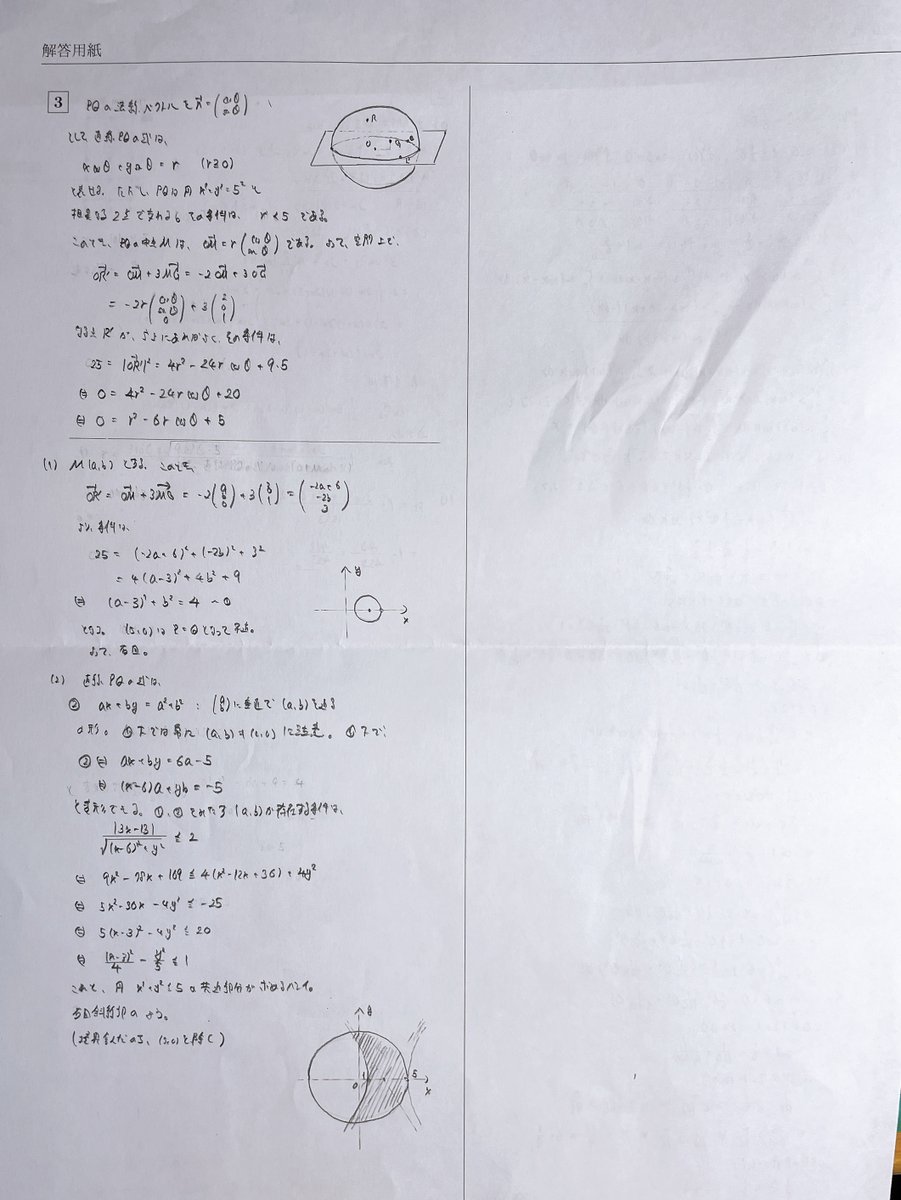 解答用紙
3 PQの法線ベクトルを n→ = (cosθ sinθ)、
として直線PQの式は、
x cosθ + y sinθ = r (r≧0)
と表せる。ただし、PQは円 x²+y²=5² と
相異なる2点で交わるための条件は、r<5 である。
このとき、PQの中点Mは、OM→ = r(cosθ sinθ) である。よって、空間上で、
OR'→ = OM→ + 3MG→ = -2OM→ + 3OG→
= -2r(cosθ sinθ 0) + 3(2 0 1)
なる点R'が、
25 = |OR'→|² = 4r² - 24r cosθ + 9・5
⇔ 0 = 4r² - 24r cosθ + 20
⇔ 0 = r² - 6r cosθ + 5
R
O
G
(1) M(a,b) とする。このとき、
OR→ = OM→ + 3MG→ = -2(a b 0) + 3(2 0 1) = (-2a+6 -2b 3)
より、条件は、
25 = (-2a+6)² + (-2b)² + 3²
= 4(a-3)² + 4b² + 9
⇔ (a-3)² + b² = 4 ~ ①
となる。(5,0)は P=Q となって不適。
よって、右図。
y
x
(2) 直線PQの式は、
② ax+by = a²+b² : (a b)に垂直で (a,b) を通る
の形。①下では常に (a,b)≠(0,0) に注意。①下で、
② ⇔ ax+by = 6a-5
⇔ (x-6)a + yb = -5
と変形できる。①、②をみたす(a,b)が存在する条件は、
|3x-13| / √((x-6)²+y²) ≦ 2
⇔ 9x² - 78x + 169 ≦ 4(x²-12x+36) + 4y²
⇔ 5x² - 30x - 4y² ≦ -25
⇔ 5(x-3)² - 4y² ≦ 20
⇔ (x-3)²/4 - y²/5 ≦ 1
これと、円 x²+y²≦5 の共通部分が求めるべき。
右図斜線部のよう。
(境界含んだのち、(5,0)を除く)
y
0
1
5
x